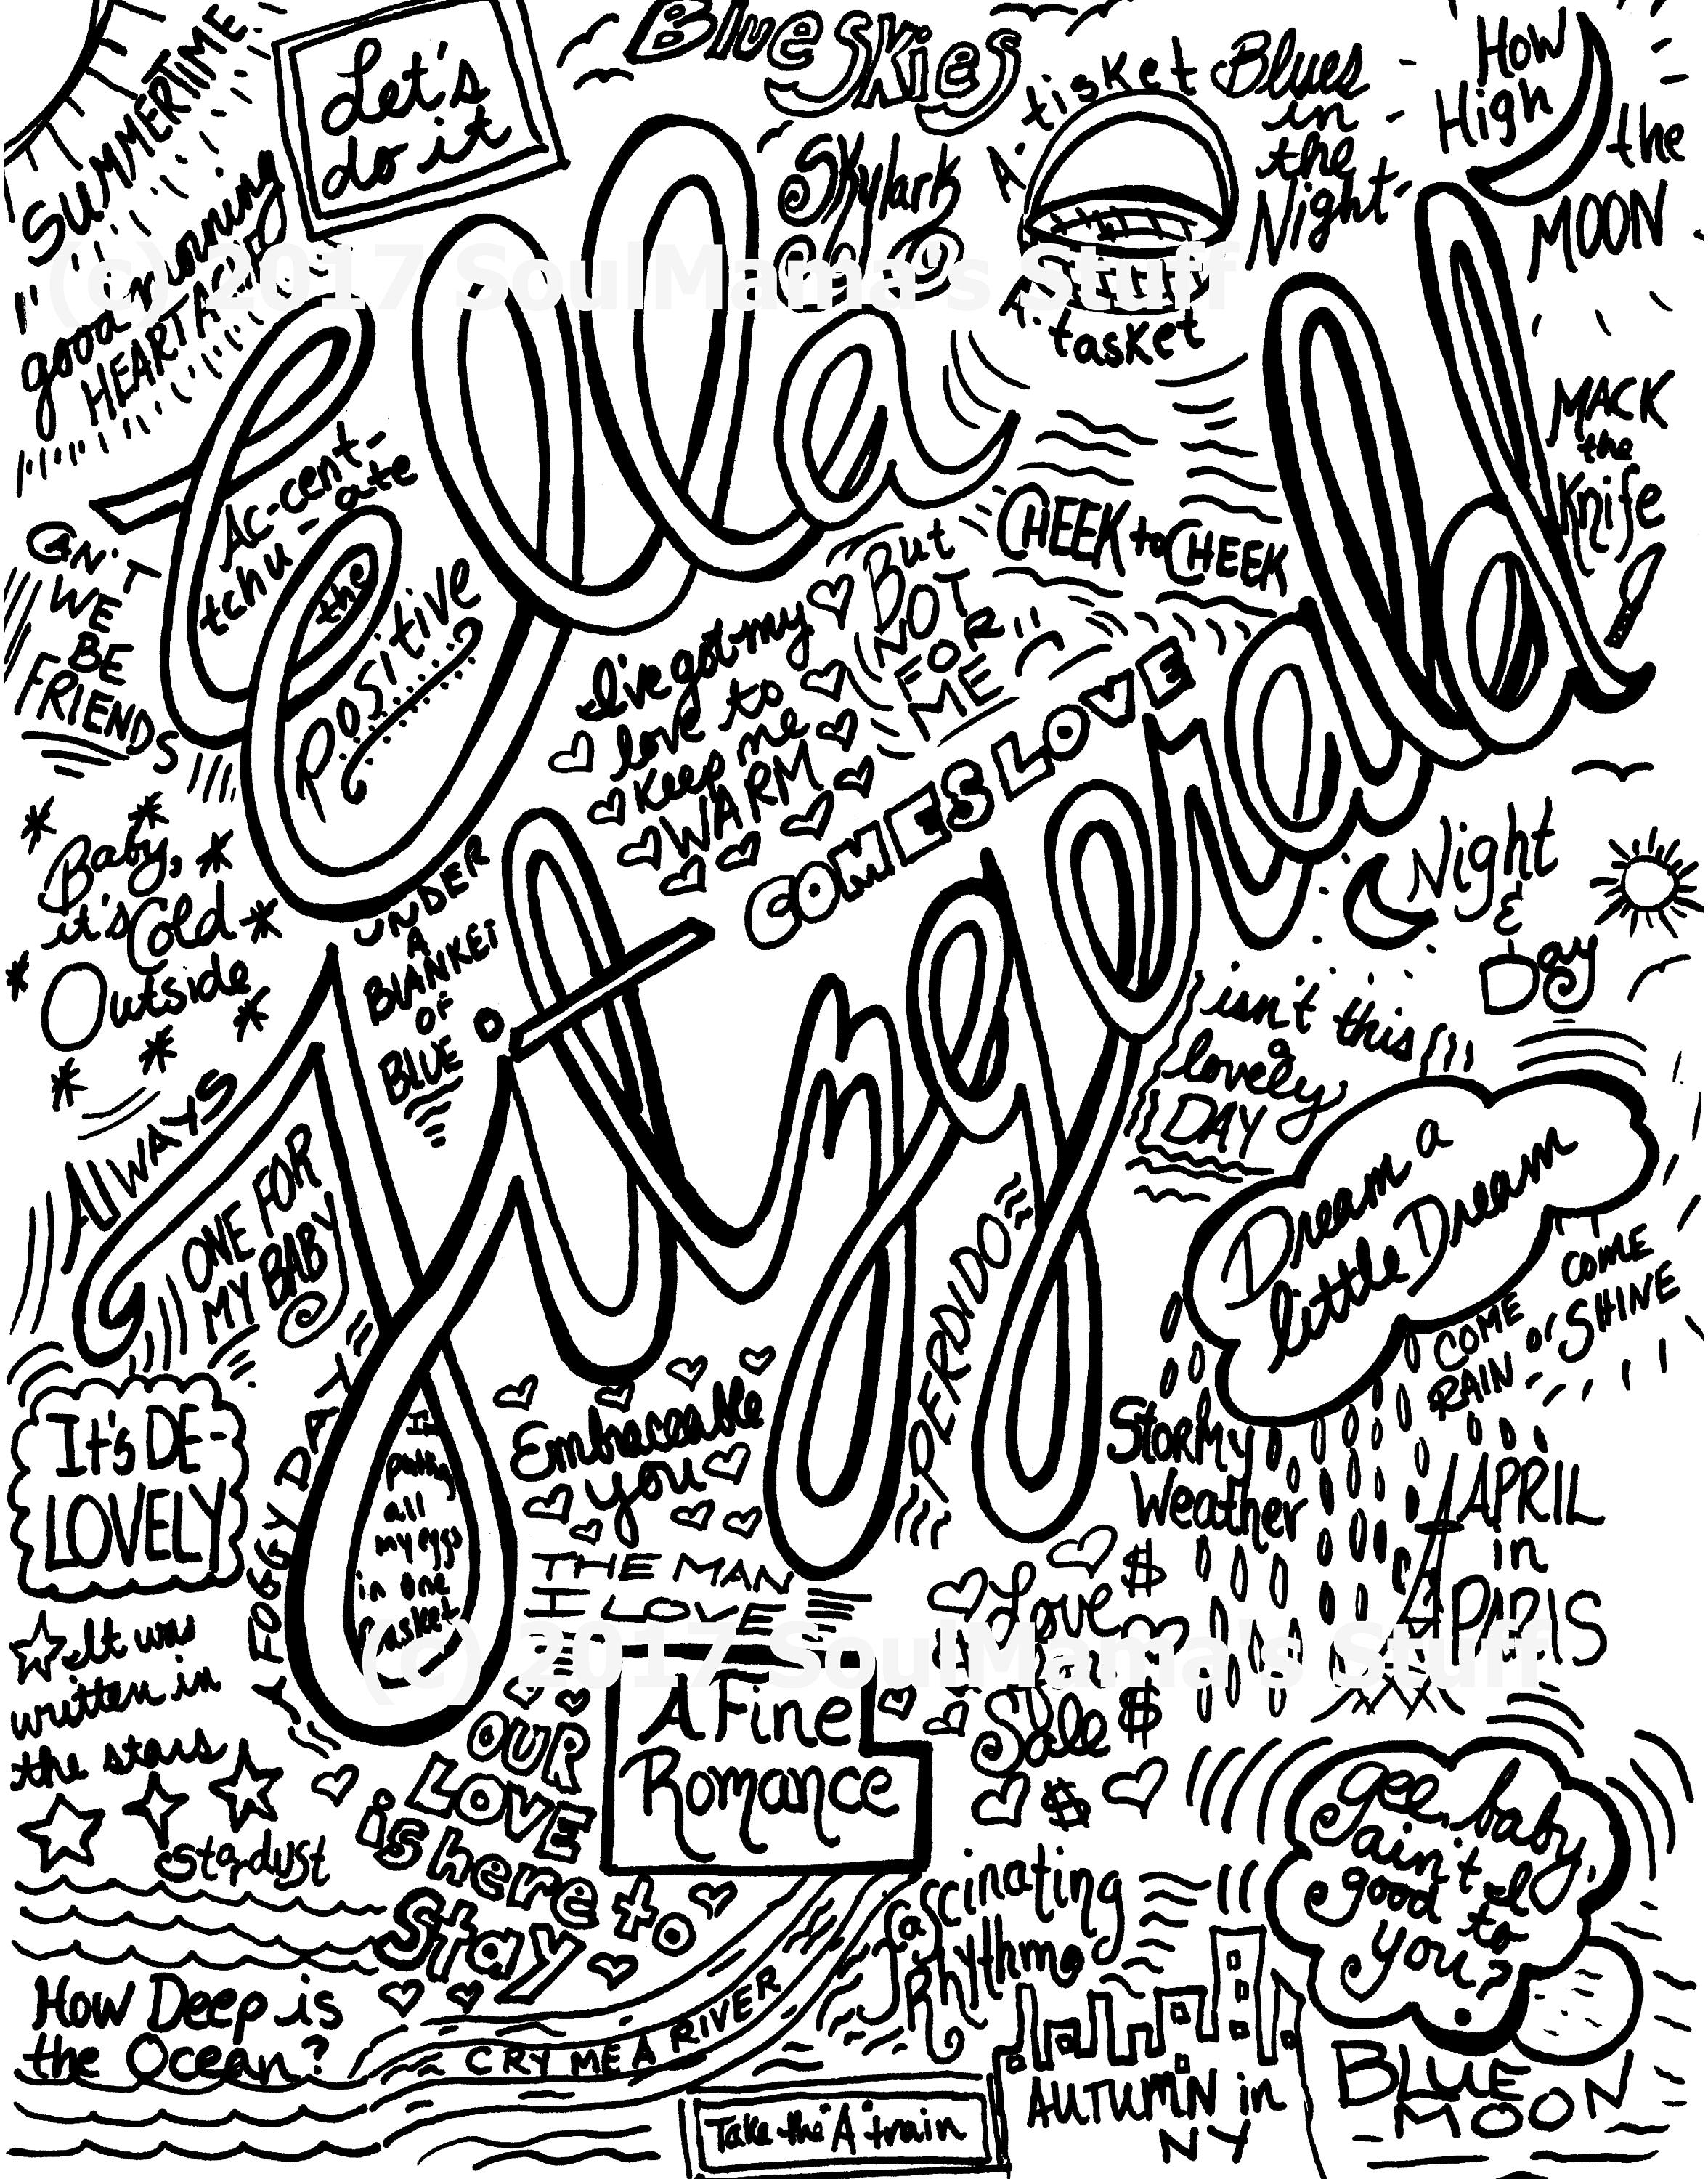 SUMMERTIME
Let's
do it
Blue Skies
A-tisket
A-tasket
Blues
in
the
Night
How
High
the
MOON
Skylark
good morning
HEARTACHE
(c) 2017 SoulMama's Stuff
Ella
Fitzgerald
MACK
the
Knife
Ac-cent-
tchu-ate
the
Positive
CAN'T
WE
BE
FRIENDS
CHEEK to CHEEK
But
NOT
FOR
ME
I've got my
love to
keep me
WARM
COMES LOVE
Baby,
it's Cold
Outside
UNDER
A
BLANKET
OF
BLUE
Night
&
Day
isn't this
a
lovely
DAY
ALWAYS
ONE FOR
MY BABY
Dream a
little Dream
COME
RAIN or
COME
SHINE
PERDIDO
It's DE-
LOVELY
FOGGY DAY
I'm
putting
all
my eggs
in one
basket
Embraceable
you
Stormy
Weather
APRIL
in
PARIS
THE MAN
I LOVE
Love
for
Sale
It was
written in
the stars
(c) 2017 SoulMama's Stuff
A Fine
Romance
OUR
LOVE
is here to
Stay
Stardust
gee, baby,
ain't I
good to
you?
fascinating
Rhythm
How Deep is
the Ocean?
CRY ME A RIVER
AUTUMN in
NY
BLUE
MOON
Take the "A" train